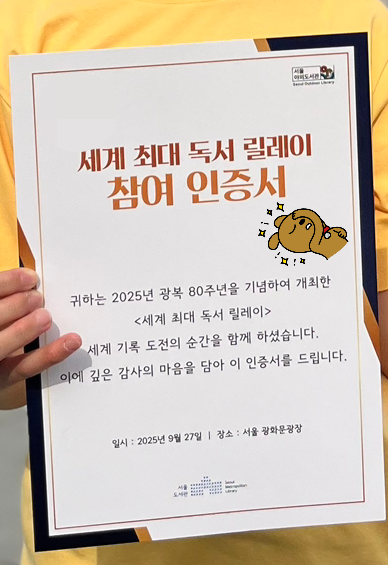 서울
야외도서관
Seoul Outdoor Library
세계 최대 독서 릴레이
참여 인증서
귀하는 2025년 광복 80주년을 기념하여 개최한
<세계 최대 독서 릴레이>
세계 기록 도전의 순간을 함께 하셨습니다.
이에 깊은 감사의 마음을 담아 이 인증서를 드립니다.
일시 : 2025년 9월 27일 | 장소 : 서울 광화문광장
서울
도서관
Seoul
Metropolitan
Library